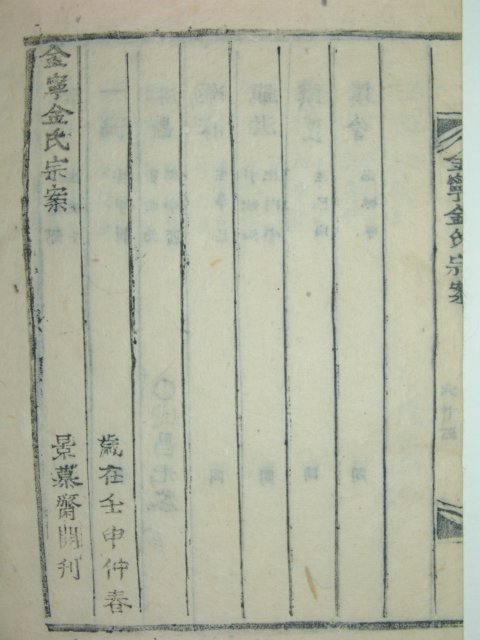 金寧金氏宗案
六十五
歲在壬申仲春
景慕齋開刊
金寧金氏宗案